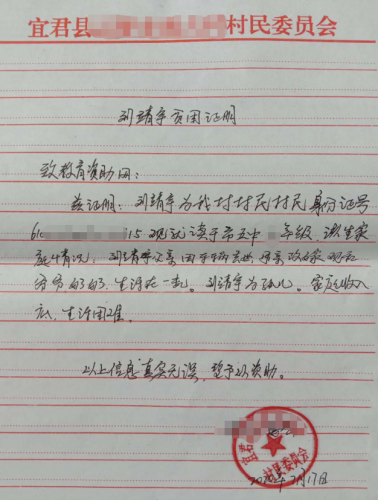 宜君县 村民委员会
刘靖宇贫困证明
致教育资助网：
兹证明：刘靖宇为我村村民村民身份证号
61 15现就读于市五中 年级，该生家
庭情况：刘靖宇父亲因病去世，母亲改嫁，现在
爷爷奶奶生活在一起。刘靖宇为孤儿。家庭收入
底，生活困难。
以上信息真实无误，望予以资助。
宜君 村民委员会
7月17日